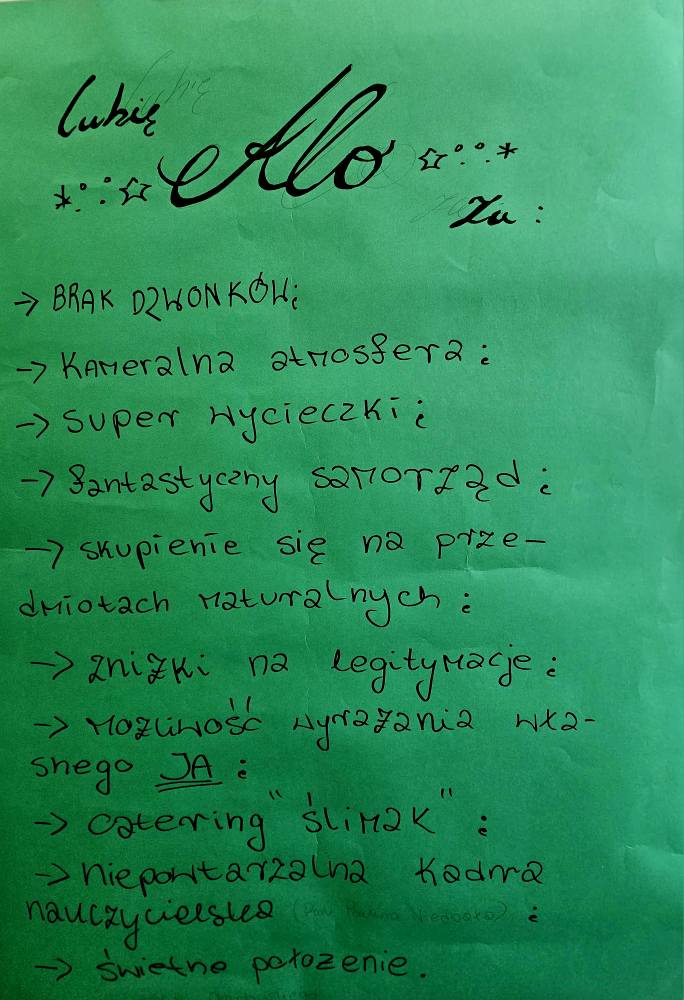 Lubię
Alo
za :
→ BRAK DZWONKÓW;
→ Kameralna atmosfera ;
→ super wycieczki ;
→ fantastyczny samorząd ;
→ skupienie się na prze-
dmiotach maturalnych ;
→ zniżki na legitymacje ;
→ możliwość wyrażania wła-
snego JA ;
→ catering "ślimak" ;
→ niepowtarzalna kadra
nauczycielska (Pani Paulina) ;
→ świetne położenie.